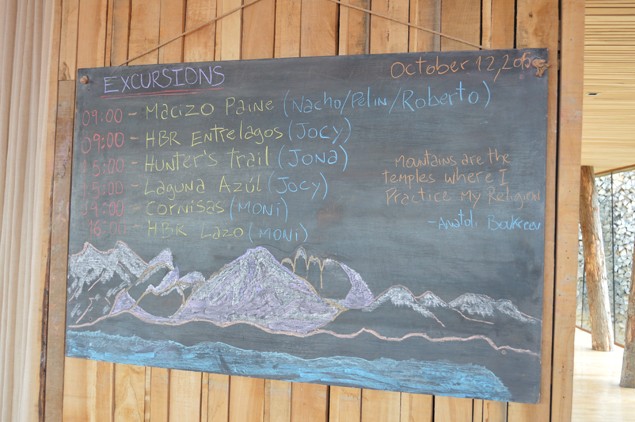 EXCURSIONS
October 12,
09:00 - Macizo Paine (Nacho/Pelin/Roberto)
09:00 - HBR Entrelagos (Jocy)
15:00 - Hunter's Trail (Jona)
15:00 - Laguna Azúl (Jocy)
Cornisas (MONI)
16:00 - HBR Lazo (MONI)
Mountains are the
temples where I
Practice My Religion
- Anatoli Boukreev